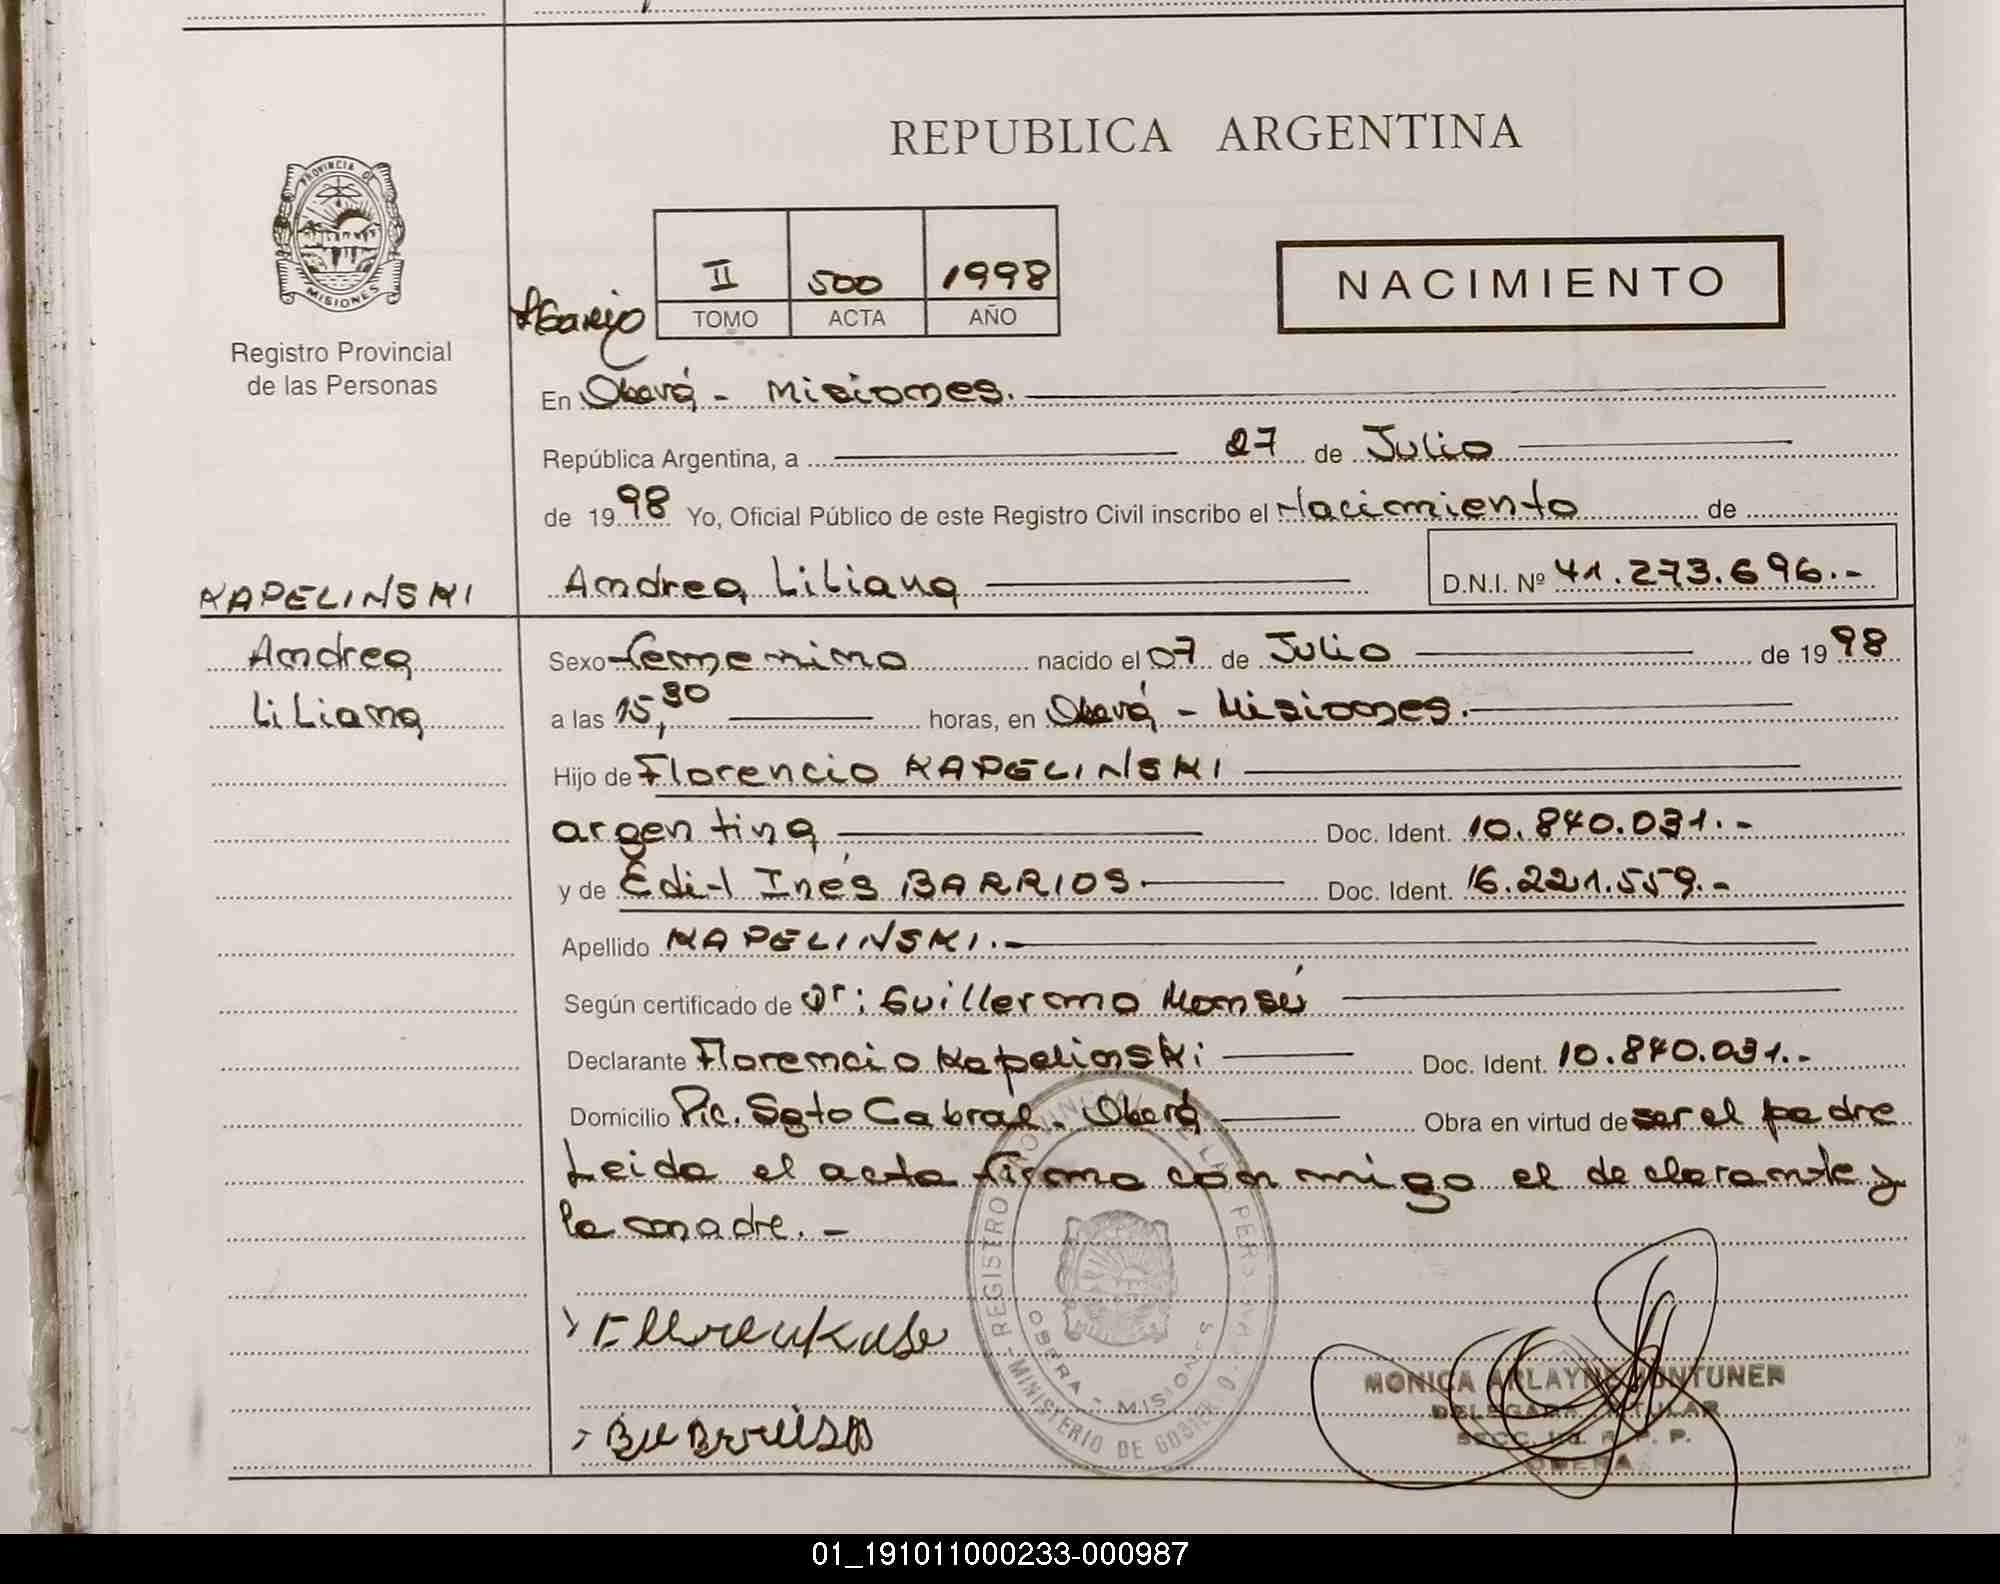 REPUBLICA ARGENTINA
PROVINCIA DE
MISIONES
Registro Provincial
de las Personas
II 500 1998
TOMO ACTA AÑO
NACIMIENTO
En Oberá - Misiones.
República Argentina, a 27 de Julio
de 1998 Yo, Oficial Público de este Registro Civil inscribo el Nacimiento de
KAPELINSKI Andrea Liliana D.N.I. Nº 41.273.696.-
Andrea Sexo femenino nacido el 07 de Julio de 1998
Liliana a las 15,30 horas, en Oberá - Misiones.
Hijo de Florencio KAPELINSKI
argentina Doc. Ident. 10.840.031.-
y de Edit Inés BARRIOS Doc. Ident. 16.221.559.-
Apellido KAPELINSKI.-
Según certificado de Dr: Guillermo
Declarante Florencio Kapelinski Doc. Ident. 10.840.031.-
Domicilio Pic. Sgto Cabral. Oberá Obra en virtud de ser el padre
Leida el acta firma con migo el declarante y
la madre. -
REGISTRO PROVINCIAL DE LAS PERSONAS
OBERA - MISIONES
MINISTERIO DE GOBIERNO
MONICA
DELEGADA TITULAR
OBERA
01_191011000233-000987